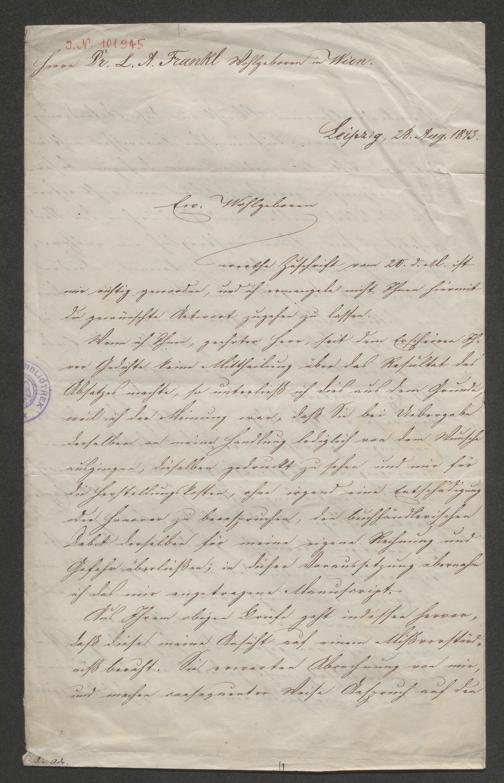 J.N. 101945
Herrn Dr. L. A. Frankl Wohlgeboren in Wien.
Leipzig, 28. Aug. 1843.
Ew. Wohlgeboren
werthe Zuschrift vom 20. d. M. ist
mir richtig geworden, und ich ermangele nicht, Ihnen hiermit
die gewünschte Antwort zugehen zu lassen.
Wenn ich Ihnen, geehrter Herr, seit dem Erscheinen Ih-
rer Gedichte keine Mittheilung über das Resultat des
Absatzes machte, so unterließ ich dies aus dem Grunde,
weil ich der Meinung war, daß Sie bei Uebergabe
derselben an meine Handlung lediglich von dem Wunsche
ausgingen, dieselben gedruckt zu sehen und mir für
die Herstellungskosten, ohne irgend eine Entschädigung
oder Honorar zu beanspruchen, den buchhändlerischen
Debit derselben für meine eigene Rechnung und
Gefahr überließen; in dieser Voraussetzung übernahm
ich das mir angetragene Manuscript.
Aus Ihrem obigen Briefe geht indessen hervor,
daß diese meine Ansicht auf einem Mißverständ-
niß beruht. Sie erwarten Abrechnung von mir,
und machen consequenter Weise Anspruch auf den
BIBLIOTHEK